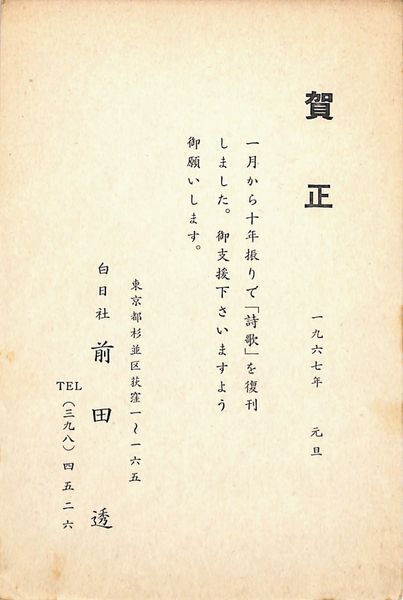 賀正
一九六七年 元旦
一月から十年振りで「詩歌」を復刊
しました。御支援下さいますよう
御願いします。
東京都杉並区荻窪一〜一六五
白日社 前田 透
TEL (三九八)四五二六